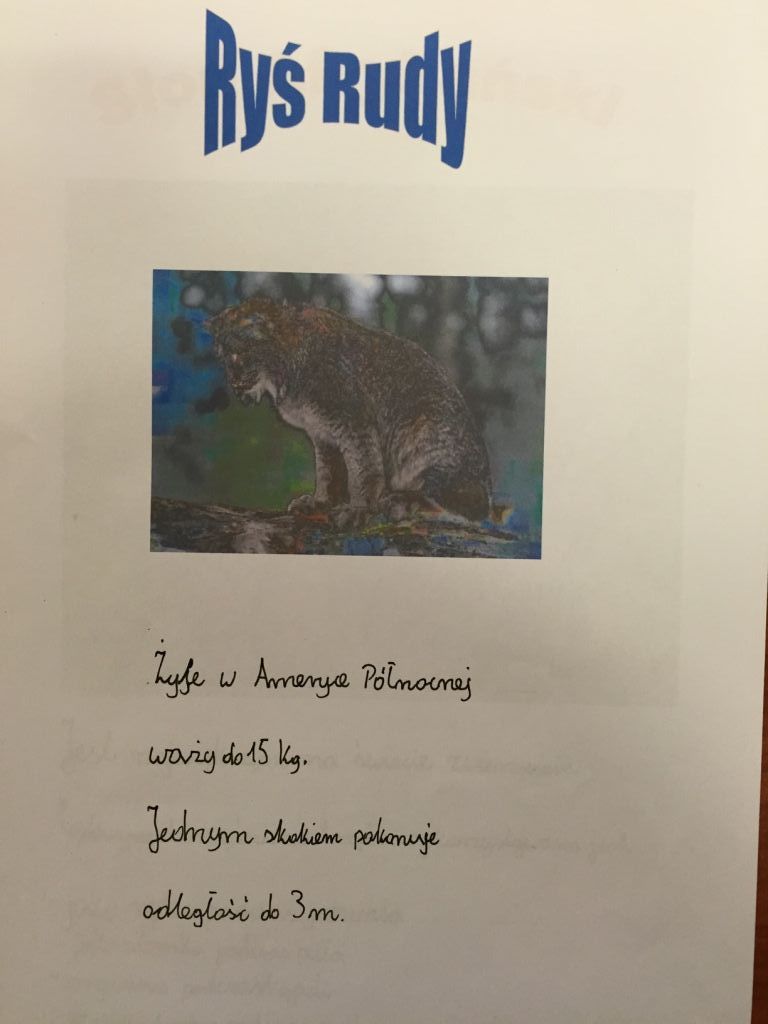 Ryś Rudy
Żyje w Ameryce Północnej
waży do 15 kg.
Jednym skokiem pokonuje
odległość do 3 m.